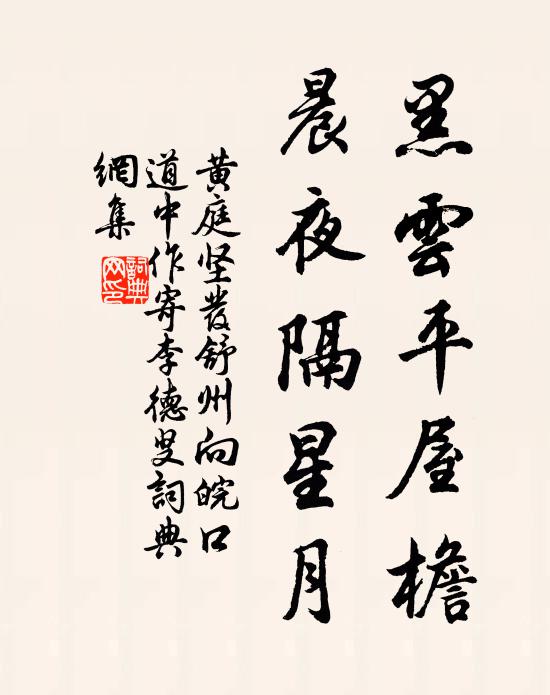 黑雲平屋檐
晨夜隔星月
黄庭坚發舒州向皖口
道中作寄李德叟詞典
網集
詞典
网印